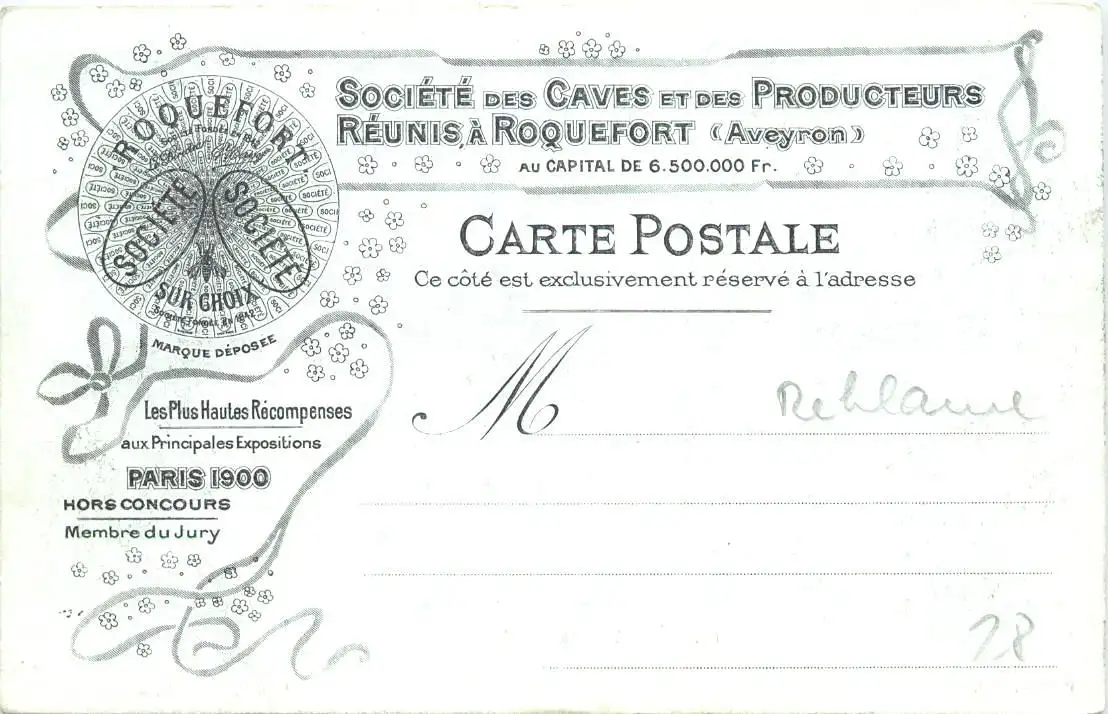 SOCIÉTÉ DES CAVES ET DES PRODUCTEURS
RÉUNIS, À ROQUEFORT (AVEYRON)
AU CAPITAL DE 6.500.000 Fr.
ROQUEFORT
SOCIÉTÉ SOCIÉTÉ
SUR CHOIX
SOCIÉTÉ FONDÉE EN 1842
MARQUE DÉPOSÉE
CARTE POSTALE
Ce côté est exclusivement réservé à l'adresse
M
Reklame
Les Plus Hautes Récompenses
aux Principales Expositions
PARIS 1900
HORS CONCOURS
Membre du Jury
18